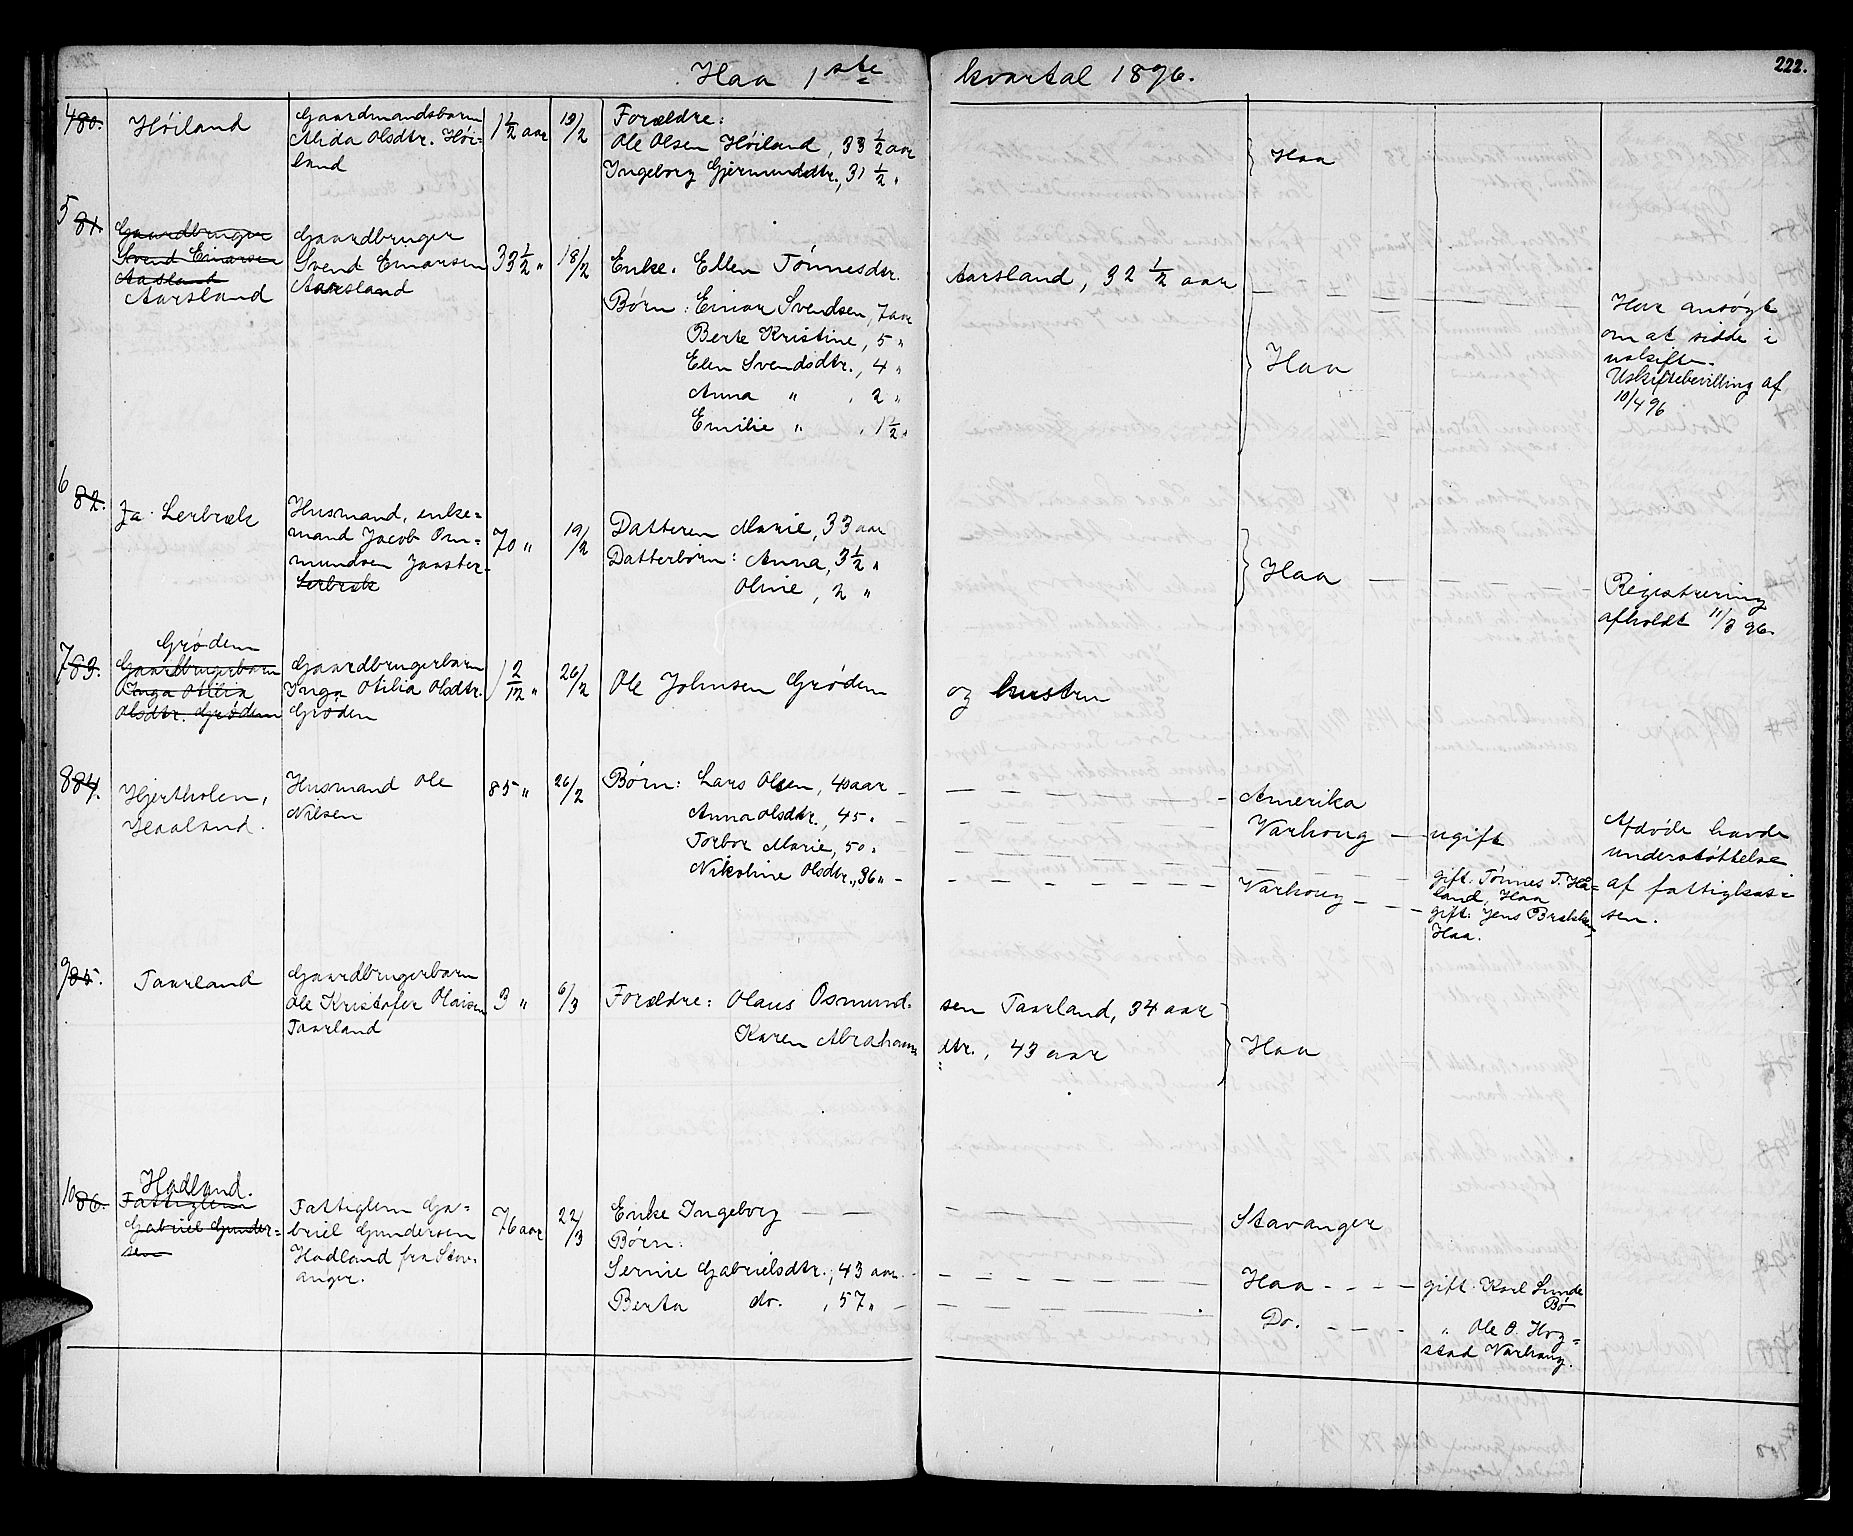 Haa 1ste kvartal 1896.
222.
4 80. Høiland
Gaardmandsbarn
Alida Olsdtr. Høi-
land
1 1/2 aar
19/2
Forældre:
Ole Olsen Høiland, 33 1/2 aar
Ingeborg Gjermundsdtr., 31 1/2 "
Haa
5 81. Gaardbruger
Svend Einarsen
Aasland
Aarsland
Gaardbruger
Svend Einarsen
Aarsland
33 1/2 "
18/2
Enke: Ellen Tønnesdtr. Aarsland, 32 1/2 aar
Børn: Einar Svendsen, 7 aar
Berte Kristine, 5 "
Elen Svendsdtr., 4 "
Anna " , 2 "
Emilie " , 1 1/2 "
Haa
Har ansøgt
om at sidde i
uskifte.
Uskiftebevilling af
10/4 96
6 82. Ja. Lerbræk
Husmand, enke=
mand Jacob Om=
mundsen Jaaster-
Lerbræk
70 "
19/2
Datteren Marie, 33 aar
Datterbørn: Anna, 3 1/2 "
Oline, 2 "
Haa
Registrering
afholdt 11/3 96.
7 83. Grødem
Gaardbrugerbarn
Inga Otilia
Olsdtr. Grødem
Gaardbrugerbarn
Inga Otilia Olsdtr.
Grødem
2/12 "
26/2
Ole Johnsen Grødem og hustru
8 84. Hjertholen,
Haaland.
Husmand Ole
Nilsen
85 "
26/2
Børn: Lars Olsen, 40 aar
Amerika
Anna Olsdtr., 45 "
Varhoug
ugift
Torbor Marie, 50 "
gift. Tønnes T. Haa=
land, Haa
Nikoline Olsdtr., 36 "
Varhoug
gift. Jens Brække
Haa.
Afdøde havde
understøttelse
af fattigkas=
sen.
9 85. Taarland
Gaardbrugerbarn
Ole Kristofer Olaisen
Taarland
3 "
6/3
Forældre: Olaus Osmundsen Taarland, 34 aar
Karen Abrahamsdtr., 43 aar
Haa
10 86. Hadland.
Fattiglem
Gabriel Gunder=
sen
Fattiglem Ga=
briel Gundersen
Hadland fra Stav=
anger.
76 aar
22/3
Enke Ingeborg
Stavanger
Børn:
Serine Gabrielsdtr., 43 aar
Haa
gift. Karl Lunde
Bø
Berta do. , 57 "
Do.
" Ole O. Hog=
stad Varhaug.